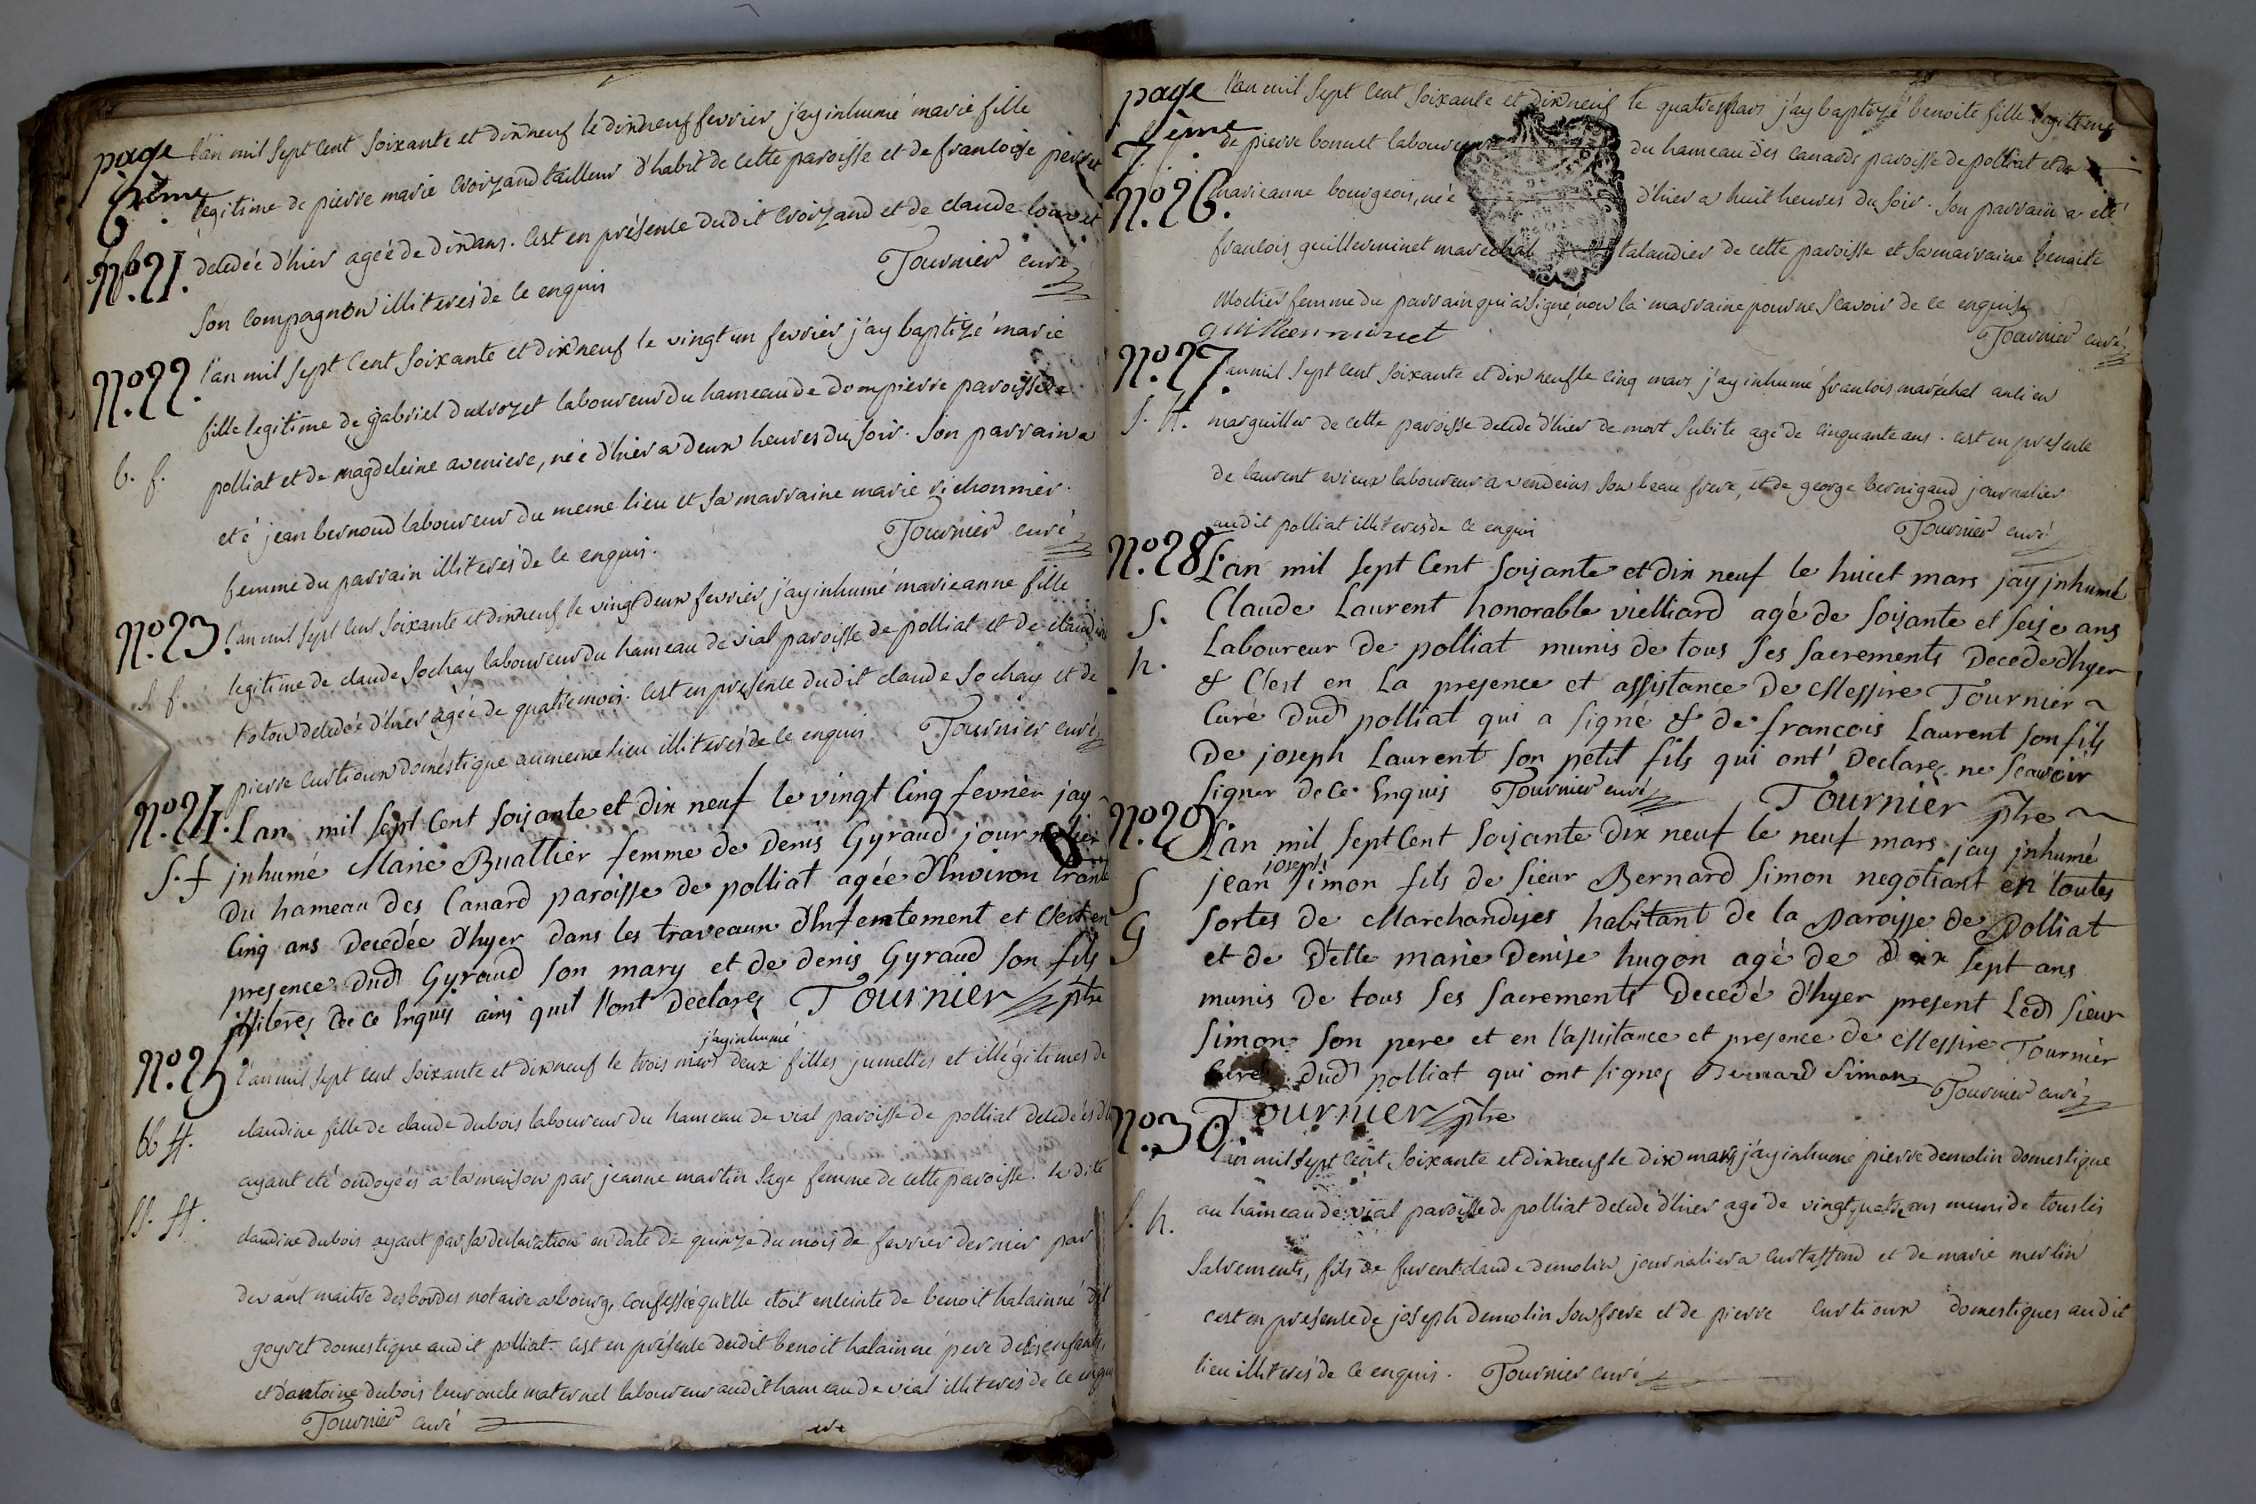 page
6ème
l'an mil sept cent soixante et dixneuf le dixneuf fevrier j'ay inhumé marie fille
legitime de pierre marie croizand tailleur d'habit de cette paroisse et de francoise
No. 21. decedée d'hier agée de dix ans. c'est en présence dudit croizand et de claude
son compagnon illiterés de ce enquis Tournier curé
No. 22. l'an mil sept cent soixante et dixneuf le vingt un fevrier j'ay baptizé marie
fille legitime de gabriel ducrozet laboureur du hameau de dompierre paroisse de
b. f. polliat et de magdeleine aveniere, née d'hier a deux heures du soir. Son parrain a
eté jean bernoud laboureur du meme lieu et sa marraine marie richonnier
femme du parrain illiterés de ce enquis. Tournier curé
No. 23. l'an mil sept cent soixante et dixneuf le vingt deux fevrier j'ay inhumé marieanne fille
s. f. legitime de claude sochay laboureur du hameau de vial paroisse de polliat et de
toton decedée d'hier agée de quatre mois. c'est en présence dudit claude sochay et de
pierre curtioux domestique au meme lieu illiterés de ce enquis Tournier curé
No. 24. Lan mil sept Cent soixante et dix neuf le vingt Cinq fevrièr jay
S. f jnhumé Marie Buattier femme de Denis Gyraud journalier
Du hameau des Canard paroisse de polliat agée d'Environ trante
Cinq ans Decedée d'hyer dans les traveaux d'Enfentement et C'est en
presence dud Gyraud son mary et de denis Gyraud son fils
jlliterez de Ce Enquis ainsi quil l'ont Declarez Tournier ptre
No. 25
j'ay inhumé
l'an mil sept cent soixante et dixneuf le trois mars deux filles jumelles et illégitimes de
bb ff. claudine fille de claude dubois laboureur du hameau de vial paroisse de polliat decedées
ayant eté ondoyées a la maison par jeanne martin sage femme de cette paroisse. la dite
ss. ff. claudine dubois ayant par sa declaration en date de quinze du mois de fevrier dernier par
devant maitre desbordes notaire a bourg, confessé qu'elle etoit enceinte de benoit halainné dit
goyvet domestique audit polliat. c'est en présence dudit benoit halainné pere des enfants,
et d'antoine dubois leur oncle maternel laboureur audit hameau de vial illiterés de ce enquis
Tournier curé
page
7ème
l'an mil sept cent soixante et dixneuf le quatre mars j'ay baptizé benoite fille legitime
de pierre bonnet laboureur du hameau des canards paroisse de polliat et de
No. 26. marieanne bourgeois, née d'hier a huit heures du soir. Son parrain a eté
francois guillerminet marechal talandier de cette paroisse et sa marraine benoite
Moctier femme du parrain qui a signé non la marraine pour ne scavoir de ce enquise
guillerminet Tournier curé
No. 27. l'an mil sept cent soixante et dix neuf le cinq mars j'ay inhumé francois maréchal ancien
s. h. marguillier de cette paroisse decedé d'hier de mort subite agé de cinquante ans. c'est en présence
de laurent evieux laboureur a vendeins son beau frere, et de george bernigaud journalier
audit polliat illiterés de ce enquis Tournier curé
No. 28. L'an mil sept Cent soixante et dix neuf le huict mars jay jnhumé
S. Claude Laurent honorable vielliard agé de soixante et seize ans
h. Laboureur de polliat munis de tous ses sacrements Decedé d'hyer
& C'est en La presence et assistance de Messire Tournièr
Curé dud polliat qui a signé & de francois Laurent son fils
De joseph Laurent son petit fils qui ont Declarez ne scavoir
signer de Ce Enquis Tournier curé Tournièr ptre
No. 29 L'an mil septCent soixante dix neuf le neuf mars jay jnhumé
joseph
S jean simon fils de sieur Bernard simon negotiant en toutes
G sortes de Marchandises habitant de la paroisse de Polliat
et de Delle marie Denise hugon agé de dix sept ans
munis de tous ses sacrements Decedé d'hyer present Led sieur
simon son pere et en l'assistance et presence de Messire Tournièr
Curé dud polliat qui ont signez Bernard Simon Tournier curé
Tournier ptre
No. 30. l'an mil sept cent soixante et dixneuf le dix mars j'ay inhumé pierre demolin domestique
s. h. au hameau de vial paroisse de polliat decedé d'hier agé de vingt quatre ans muni de tous les
sacrements, fils de furent claude demolin journalier a curtaffond et de marie merlin
c'est en présence de joseph demolin son frere et de pierre curtioux domestiques audit
lieu illiterés de ce enquis. Tournier curé